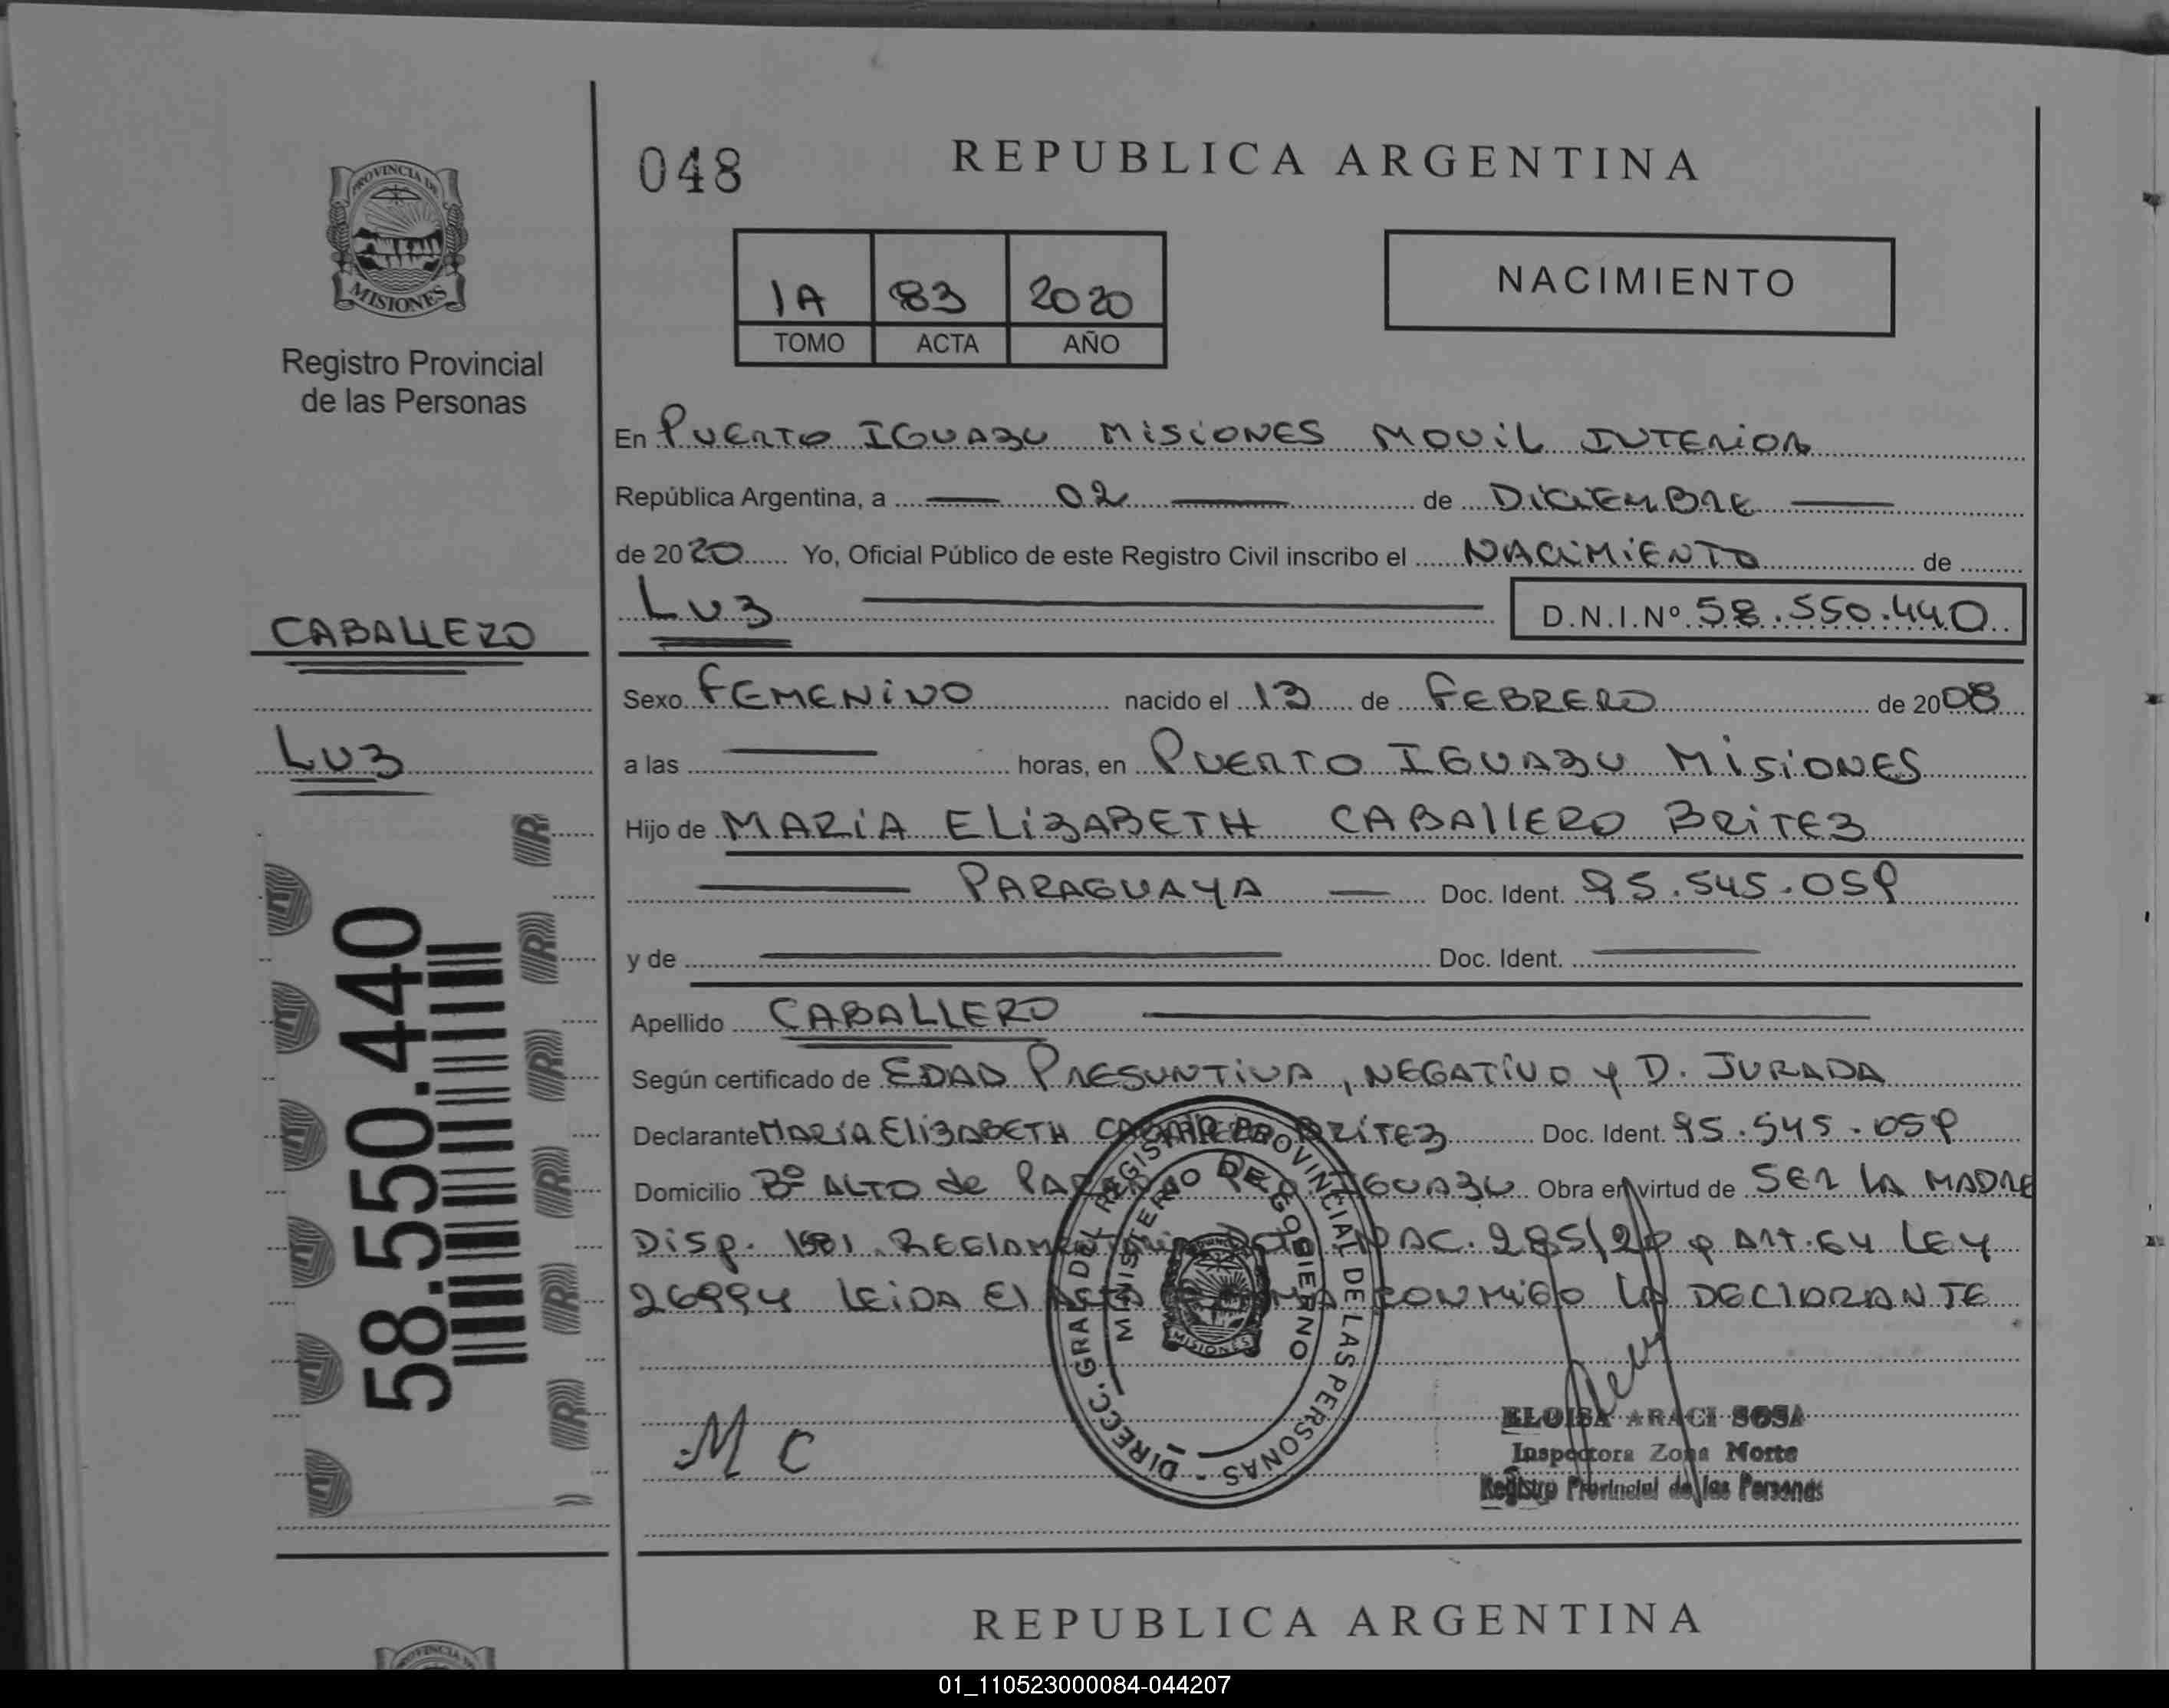 048
REPUBLICA ARGENTINA
PROVINCIA DE
MISIONES
Registro Provincial
de las Personas
1A 83 2020
TOMO ACTA AÑO
NACIMIENTO
En PUERTO IGUAZU MISIONES MOVIL INTERIOR
República Argentina, a 02 de DICIEMBRE
de 2020 Yo, Oficial Público de este Registro Civil inscribo el NACIMIENTO de
LUZ D.N.I.Nº 58.550.440
CABALLERO
LUZ
Sexo FEMENINO nacido el 13 de FEBRERO de 2008
a las horas, en PUERTO IGUAZU MISIONES
Hijo de MARIA ELIZABETH CABALLERO BRITEZ
PARAGUAYA Doc. Ident. 95.545.059
y de Doc. Ident.
Apellido CABALLERO
Según certificado de EDAD PRESUNTIVA, NEGATIVO Y D. JURADA
Declarante MARIA ELIZABETH CABALLERO BRITEZ Doc. Ident. 95.545.059
Domicilio Bº ALTO de IGUAZU Obra en virtud de SER LA MADRE
DISP. 285/20 ART. 64 LEY
26994 LEIDA EL ACTA CONMIGO LA DECLARANTE
58.550.440
DIRECC. GRAL DEL REGISTRO PROVINCIAL DE LAS PERSONAS
MINISTERIO DE GOBIERNO
MISIONES
M C
ELOISA ARACI SOSA
Inspectora Zona Norte
Registro Provincial de las Personas
REPUBLICA ARGENTINA
01_110523000084-044207